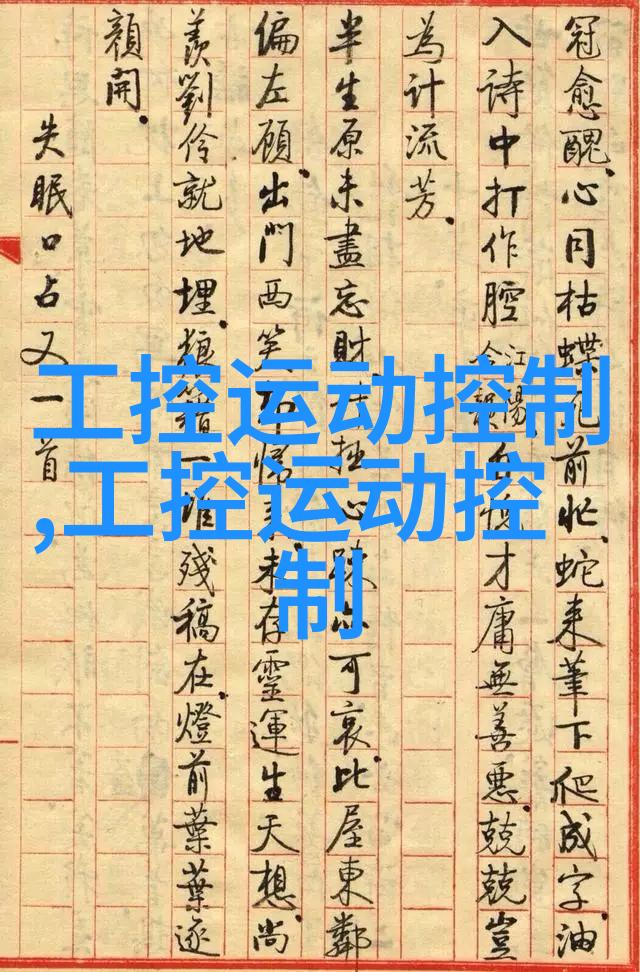 冠愈醜。心同枯蝶花前忙。蛇来筆下爬成字。油
入詩中打作腔
江陽
才庸無善惡。兢兢豈
為計流芳。
半生原未盡忘財
拙心
可哀。比屋東鄰
偏左顧。出門西笑
未存靈運生天想。尚
羨劉伶就地埋。狼藉一堆殘稿在。燈前葉葉逐
顏開。
失眠口占又一首
工控运动控制
,工控运动控
制